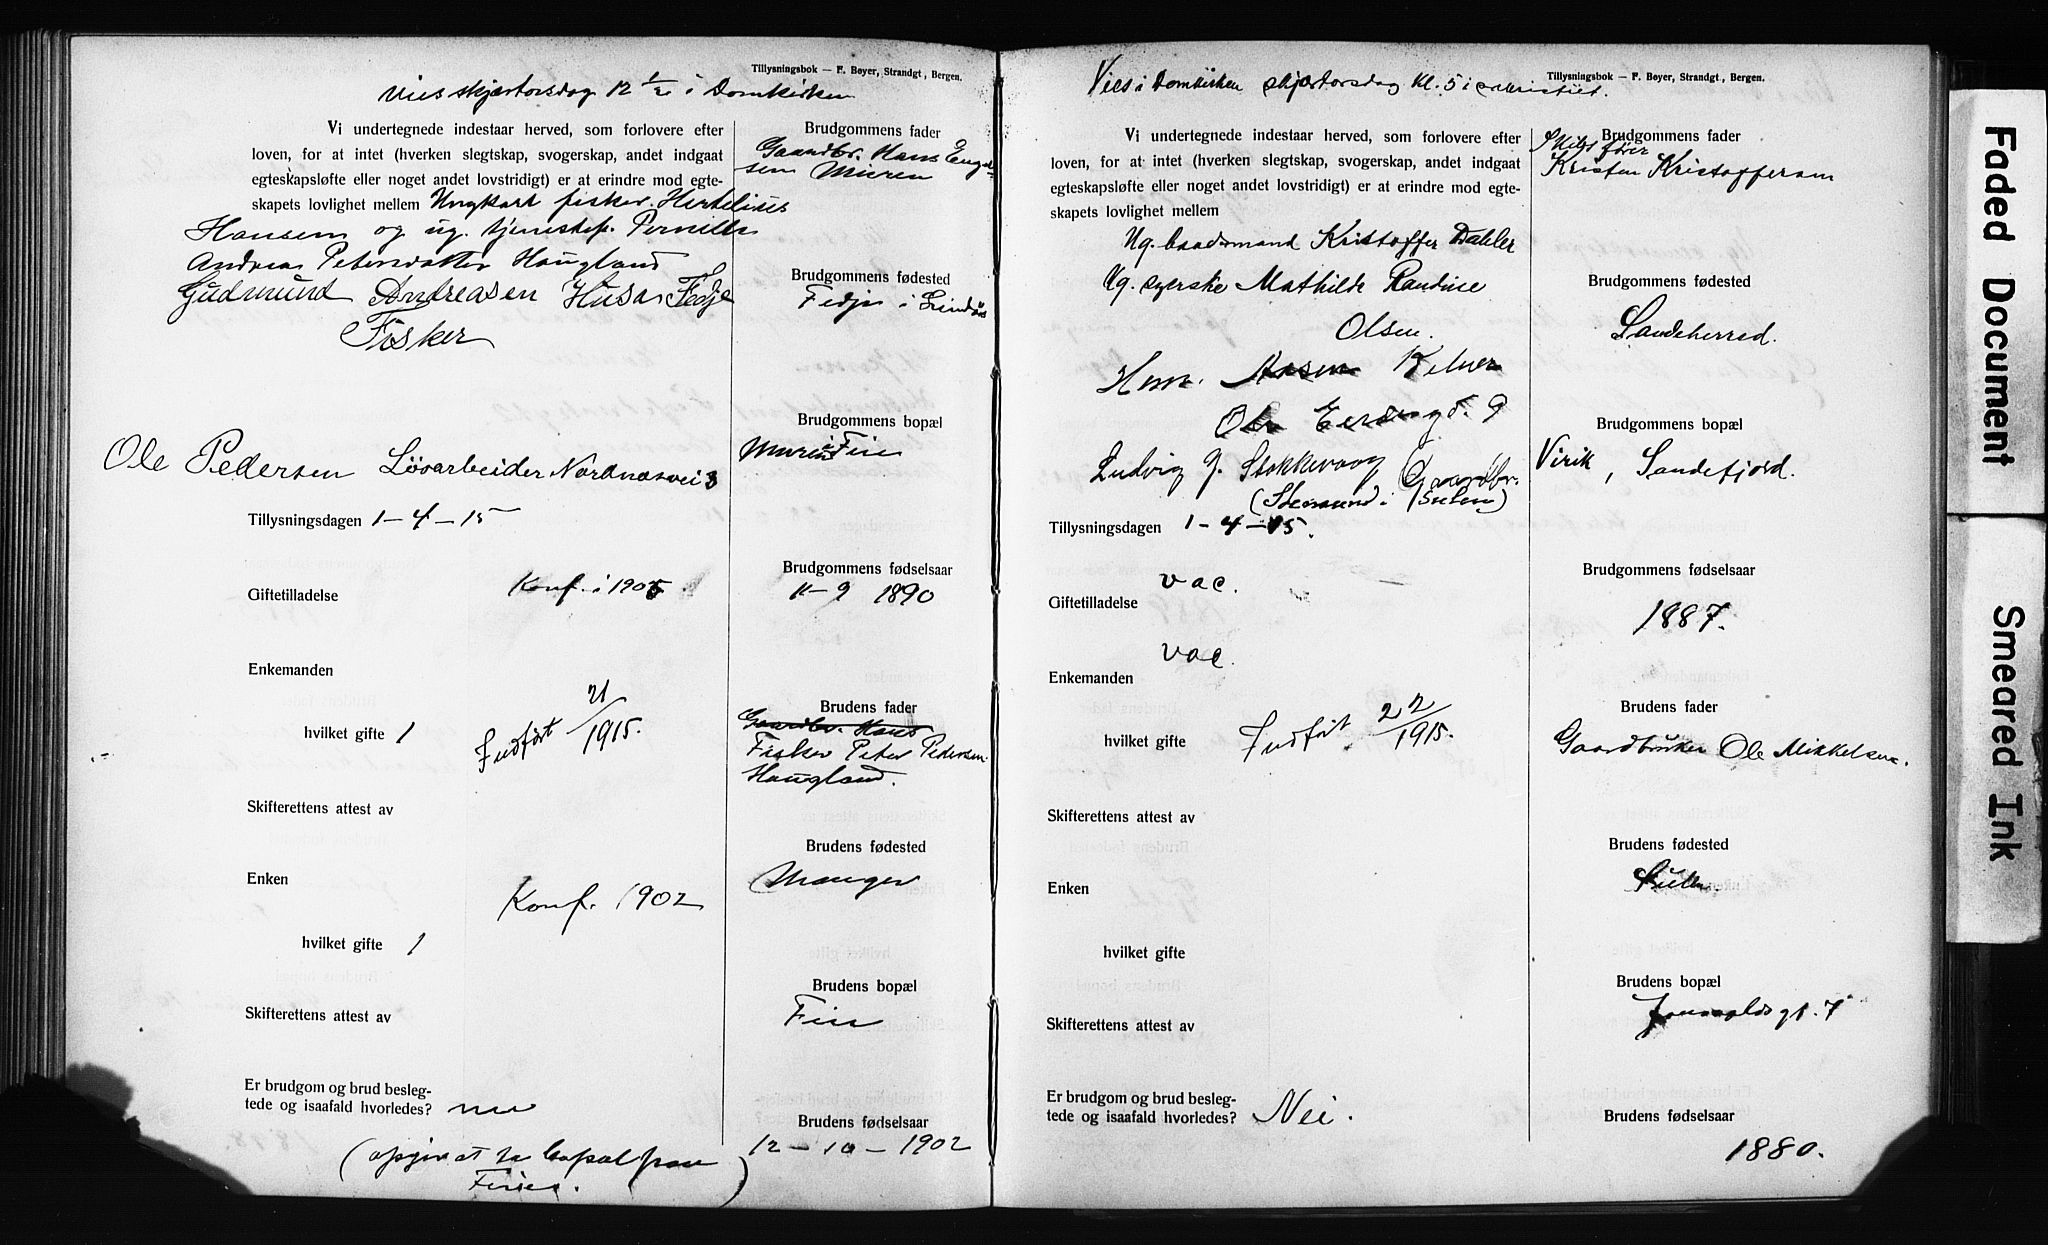 Tillysningsbok — F. Bøyer, Strandgt, Bergen.
Vies skjærtorsdag 12 ½ i Domkirken
Vi undertegnede indestaar herved, som forlovere efter
loven, for at intet (hverken slegtskap, svogerskap, andet indgaat
egteskapsløfte eller noget andet lovstridigt) er at erindre mod egte-
skapets lovlighet mellem Ungkarl fisker Hertelius
Hansen og ug. tjenestep. Pernille
Andrea Petersdatter Haugland
Gudmund Andreasen Husa Fedje
Fisker
Ole Pedersen Løsarbeider Nordnæsvei 3
Tillysningsdagen 1-4-15
Konf. i 1905
Giftetilladelse
Enkemanden
hvilket gifte 1
Indført 21/1915.
Skifterettens attest av
Enken
Konf. 1902
hvilket gifte 1
Skifterettens attest av
Er brudgom og brud besleg-
tede og isaafald hvorledes?
(opgivet bopæl paa
)
Brudgommens fader
Gaardbr. Hans Engel-
sen Muren
Brudgommens fødested
Fedje i Lindås
Brudgommens bopæl
Muren i Fic
Brudgommens fødselsaar
11-9 1890
Brudens fader
Gaardbr. Hans
Fisker Peter Pedersen
Haugland.
Brudens fødested
Manger
Brudens bopæl
Brudens fødselsaar
12-10-1902
Tillysningsbok — F. Bøyer, Strandgt, Bergen.
Vies i Domkirken skjærtorsdag Kl. 5 i sakristiet.
Vi undertegnede indestaar herved, som forlovere efter
loven, for at intet (hverken slegtskap, svogerskap, andet indgaat
egteskapsløfte eller noget andet lovstridigt) er at erindre mod egte-
skapets lovlighet mellem
Ug. baadsmand Kristoffer Dahler
Ug. syerske Mathilde Randine
Olsen.
9
Ludvig J. Stokkevaag Gaardbr.
(Steinsund i Sulen)
Tillysningsdagen 1-4-15.
vac.
Giftetilladelse
vac.
Enkemanden
hvilket gifte
Indført 22/1915.
Skifterettens attest av
Enken
hvilket gifte
Skifterettens attest av
Er brudgom og brud besleg-
tede og isaafald hvorledes? Nei.
Brudgommens fader
Skibsfører
Kristen Kristoffersen
Brudgommens fødested
Sandeherred.
Brudgommens bopæl
Virik, Sandefjord.
Brudgommens fødselsaar
1887.
Brudens fader
Gaardbruker Ole Mikkelsen.
Brudens fødested
Sulen.
Brudens bopæl
7
Brudens fødselsaar
1880.
Faded Document
Smeared Ink